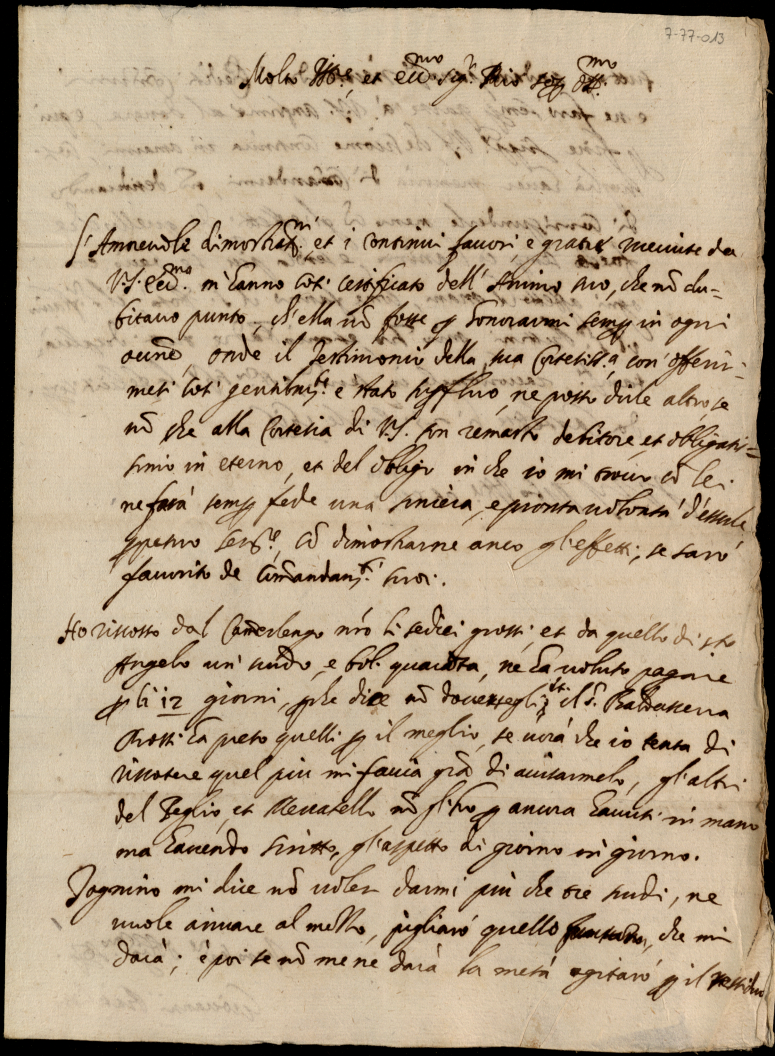 7-77-013
Molto Ill.re et ecc.mo Sig.r mio oss.mo
L'Amorevoli dimostrat.ni et i continui favori, e gratie ricevute da
V.S. ecc.ma m'hanno cosi certificato dell'Animo suo, che nō du=
bitavo punto, ch'ella nō fosse p honorarmi semp in ogni
occne, onde il Testimonio della sua Cortesiss.a con offeri=
meti cosi gentiliss. è stato, ne posso dirle altro, se
nō che alla Cortesia di V.S. son remasto debitore, et obligatis=
simo in eterno, et del obligo in che io mi trovo cō lei
ne farà semp fede una sincera, e pronta volontà d'esserle
ppetuo ser.re, cō dimostrarne anco gl'effetti, se sarò
favorito de Comandam.ti suoi.
Ho riscosso dal Camerlengo nr̄o li sedici grossi, et da quello di s.to
Angelo un scudo, e bol. quaranta, ne ha voluto pagare
p li 12 giorni, pche dice nō doversegli il S.r Baldasserra
Rossi ha preso quelli p il meglio, se vorà che io tenta di
riscotere quel più mi facia grā di avisarmelo, gl'altri
del Peglio, et Mercatello nō gl'ho p ancora havuti in mano
ma havendo scritto, gl'aspetto di giorno in giorno.
Tognino mi dice nō voler darmi più che tre scudi, ne
vuole arivare al mezzo, pigliarò quello, che mi
darà; e poi se nō me ne darà la metà agitarò p il restante